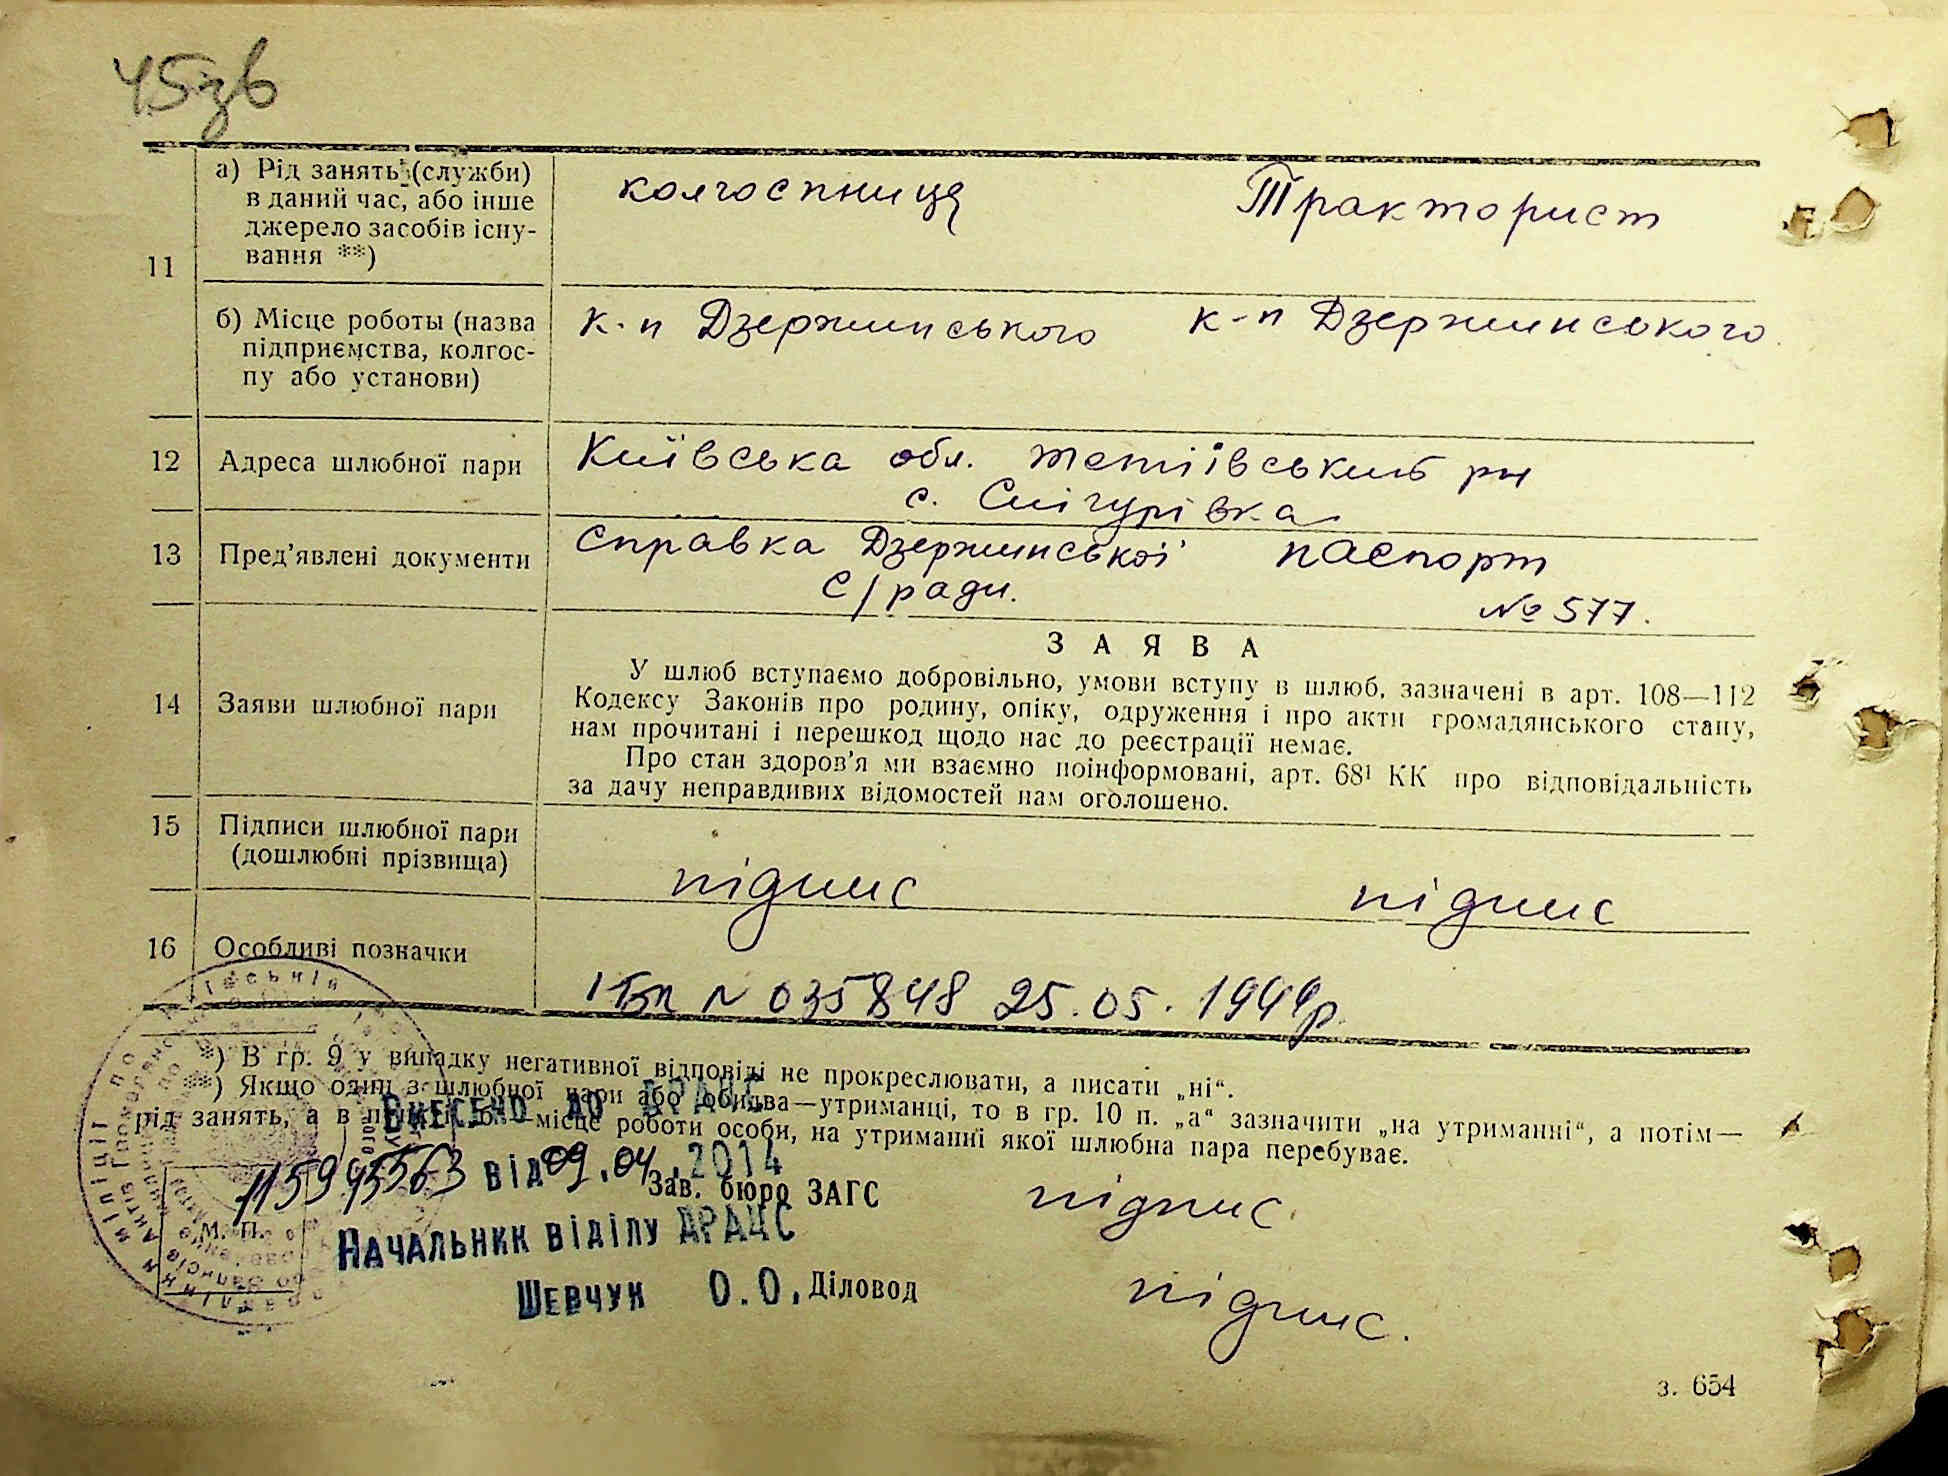 45зв
11
а) Рід занять (служби)
в даний час, або інше
джерело засобів існу-
вання **)
колгоспниця Тракторист
б) Місце роботи (назва
підприємства, колгос-
пу або установи)
к-п Дзержинського к-п Дзержинського
12 Адреса шлюбної пари
Київська обл. Тетіївський рн
с. Снігурівка
13 Пред’явлені документи
Справка Дзержинської паспорт
с/ради. № 577.
14 Заяви шлюбної пари
ЗАЯВА
У шлюб вступаємо добровільно, умови вступу в шлюб, зазначені в арт. 108—112
Кодексу Законів про родину, опіку, одруження і про акти громадянського стану,
нам прочитані і перешкод щодо нас до реєстрації немає.
Про стан здоров’я ми взаємно поінформовані, арт. 68¹ КК про відповідальність
за дачу неправдивих відомостей нам оголошено.
15 Підписи шлюбної пари
(дошлюбні прізвища)
підпис підпис
16 Особливі позначки
N 035848 25.05.1944р.
*) В гр. 9 у випадку негативної відповіді не прокреслювати, а писати „ні“.
**) Якщо один з шлюбної пари або обидва—утриманці, то в гр. 10 п. „а“ зазначити „на утриманні“, а потім—
рід занять, а в пункті „б“—місце роботи особи, на утриманні якої шлюбна пара перебуває.
Внесено до ДРАЦС
115945563 від 09.04.2014
Зав. бюро ЗАГС підпис.
М. П.
Начальник відділу ДРАЦС
Шевчук О.О.
Діловод підпис.
з. 654